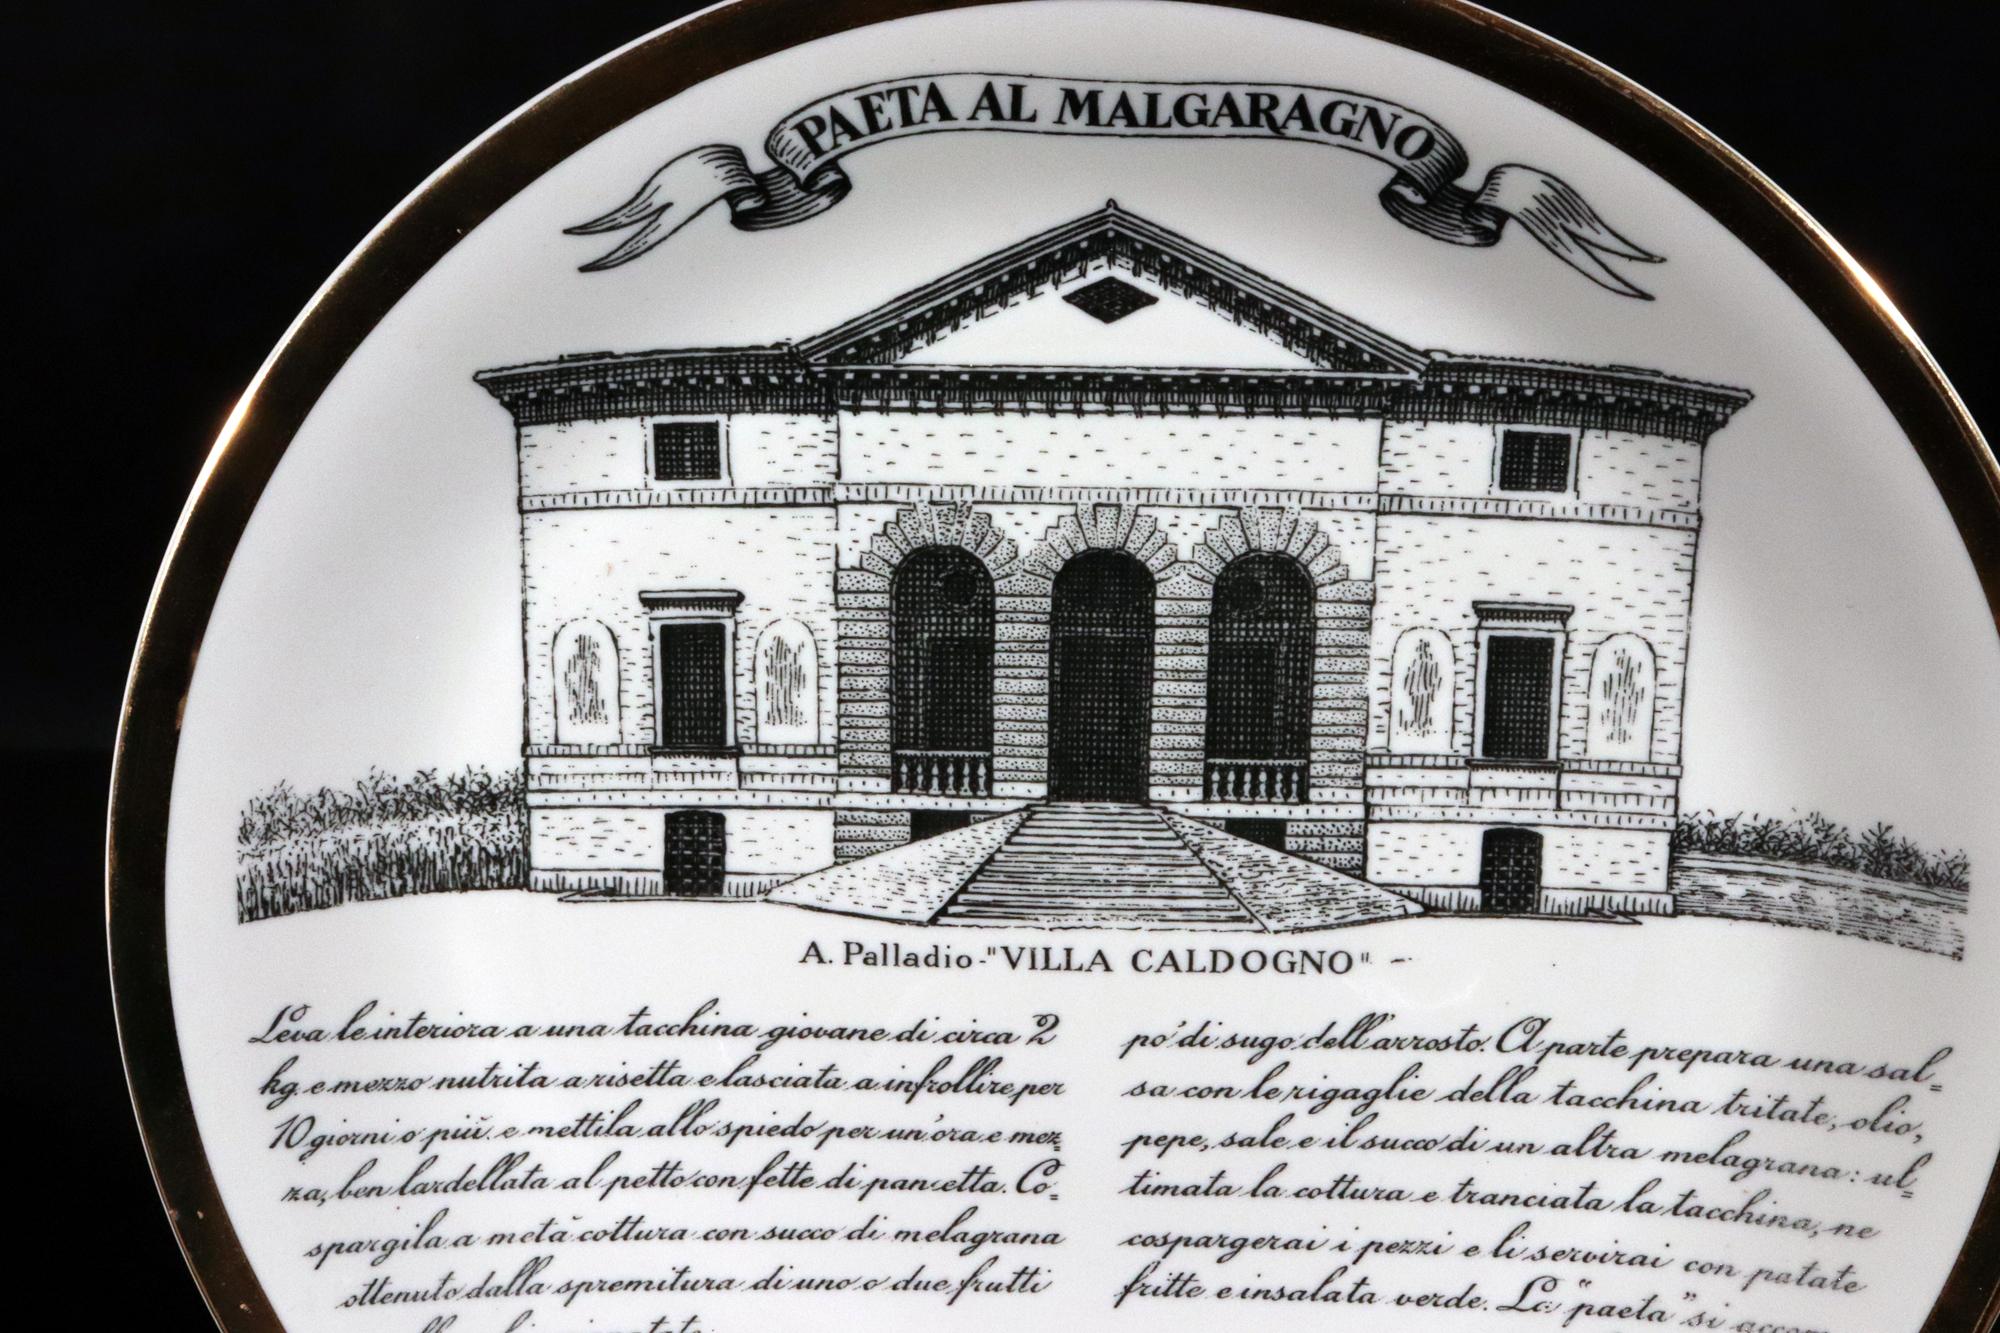 PAETA AL MALGARAGNO
A. Palladio - "VILLA CALDOGNO"
Leva le interiora a una tacchina giovane di circa 2
kg. e mezzo nutrita a risetta e lasciata a infrollire per
10 giorni o più e mettila allo spiedo per un'ora e mez=
za, ben lardellata al petto con fette di pancetta. Co=
spargila a metà cottura con succo di melagrana
ottenuto dalla spremitura di uno o due frutti
po' di sugo dell'arrosto. A parte prepara una sal=
sa con le rigaglie della tacchina tritate, olio,
pepe, sale e il succo di un altra melagrana: ul=
timata la cottura e tranciata la tacchina, ne
cospargerai i pezzi e li servirai con patate
fritte e insalata verde. La "paeta" si